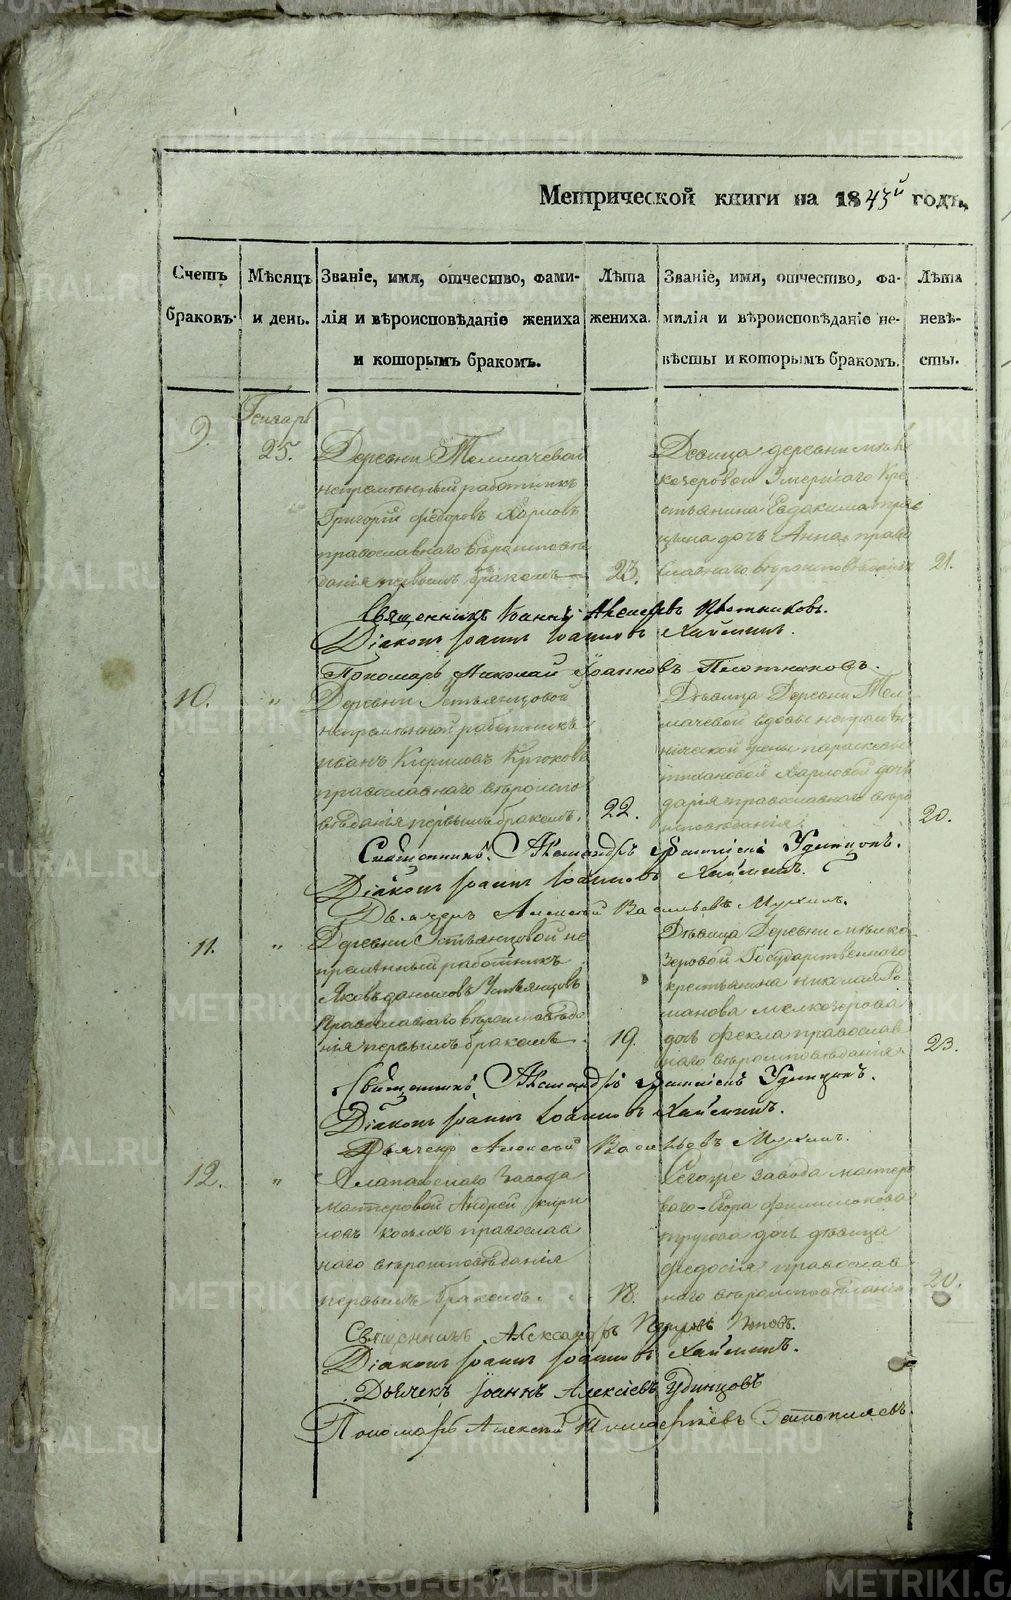 Метрической книги на 1843й годъ.
Счетъ браковъ.
Мѣсяцъ и день.
Званіе, имя, отчество, фами-
лія и вѣроисповѣданіе жениха
и которымъ бракомъ.
Лѣта
жениха.
Званіе, имя, отчество, фа-
милія и вѣроисповѣданіе не-
вѣсты и которымъ бракомъ.
Лѣта
невѣ-
сты.
9.
Генварь
25.
Деревни Толмачевой
непремѣнный работникъ
Григорій Федоровъ Харловъ
православнаго вѣроисповѣ
данія первымъ бракомъ
23.
Девица деревни мѣлк
козеровой Умершаго Кре
стьянина Евдакима
дочь Анна право
славнаго вѣроисповѣданія
21.
Священникъ Іоаннъ Алексеевъ Плотниковъ.
Діаконъ Іоаннъ Іоанновъ Хаймин.
Пономарь Николай Іоанновъ Плотниковъ.
10.
"
Деревни Устьянцовой
непремѣнной работникъ
иванъ Кириловъ Крюковъ
православнаго вѣроиспо
вѣданія первымъ бракомъ.
22.
Дѣвица Деревни Тол
мачевой вдовы непремѣн
нической жены параскевы
Харловой дочь
дарія православнаго вѣро
исповѣданія
20.
Священникъ Александръ Удинцовъ.
Діаконъ Іоаннъ Іоанновъ Хаймин.
Дьячекъ Алексѣй Васильевъ Мухинъ.
11.
"
Деревни Устьянцовой не
премѣнный работникъ
Яковъ даниловъ Устьянцовъ
православнаго вѣроисповѣда
нія первымъ бракомъ
19.
Дѣвица Деревни мѣлко
зеровой Государственнаго
крестьянина николая Ро
манова мелкозерова
дочь фекла православ
наго вѣроисповѣданія
23.
Священникъ Александръ Удинцовъ.
Діаконъ Іоаннъ Іоанновъ Хаймин.
Дьячекъ Алексѣй Васильевъ Мухинъ.
12.
"
Алапаевскаго Завода
мастеровой Андрей кири
ловъ православ
наго вѣроисповѣданія
первымъ бракомъ.
18.
Сегоже завода мастеро
ваго Егора филимонова
трусова дочь дѣвица
федосія православ
наго вѣроисповѣданія
20.
Священникъ Александръ Петровъ Поповъ.
Діаконъ Іоаннъ Іоанновъ Хаймин.
Дьячекъ Іоаннъ Алексіевъ Удинцовъ
Пономарь Алексѣй Тимофеевъ
METRIKI.GASO-URAL.RU